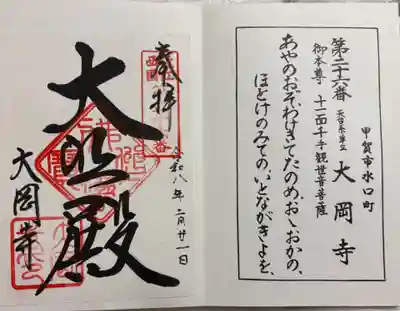 甲賀市水口町
第二十六番 天台宗単立 大岡寺
御本尊 十一面千手観世音菩薩
あやのおぞわけきてたのめ、おゝおかの、
ほとけのみてのいとながきよを、
奉拝
令和八年二月廿一日
大悲殿
大岡寺